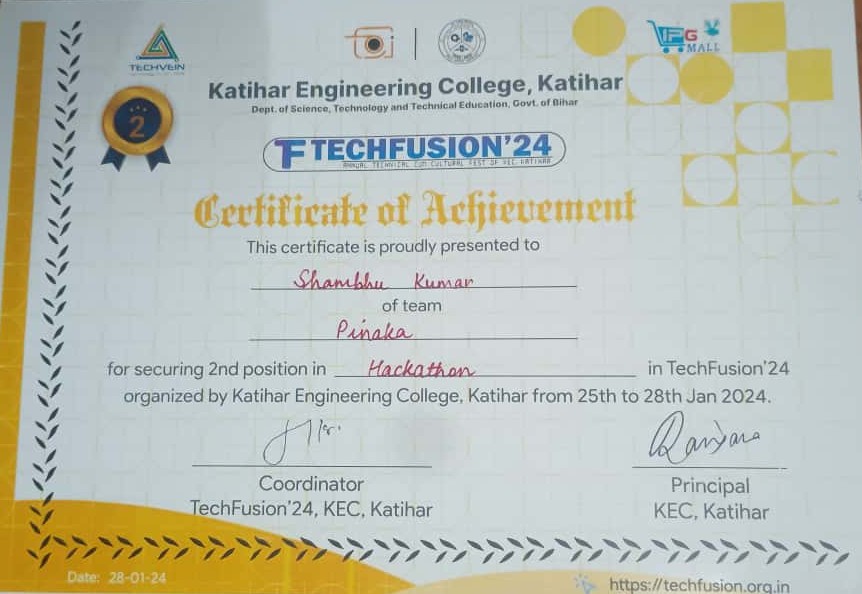 TECHVEIN
IPG
MALL
Katihar Engineering College, Katihar
Dept. of Science, Technology and Technical Education, Govt. of Bihar
2
TF TECHFUSION'24
ANNUAL TECHNICAL CUM CULTURAL FEST OF KEC KATIHAR
Certificate of Achievement
This certificate is proudly presented to
Shambhu Kumar
of team
Pinaka
for securing 2nd position in Hackathon in TechFusion'24
organized by Katihar Engineering College, Katihar from 25th to 28th Jan 2024.
Coordinator
TechFusion'24, KEC, Katihar
Principal
KEC, Katihar
Date: 28-01-24
https://techfusion.org.in